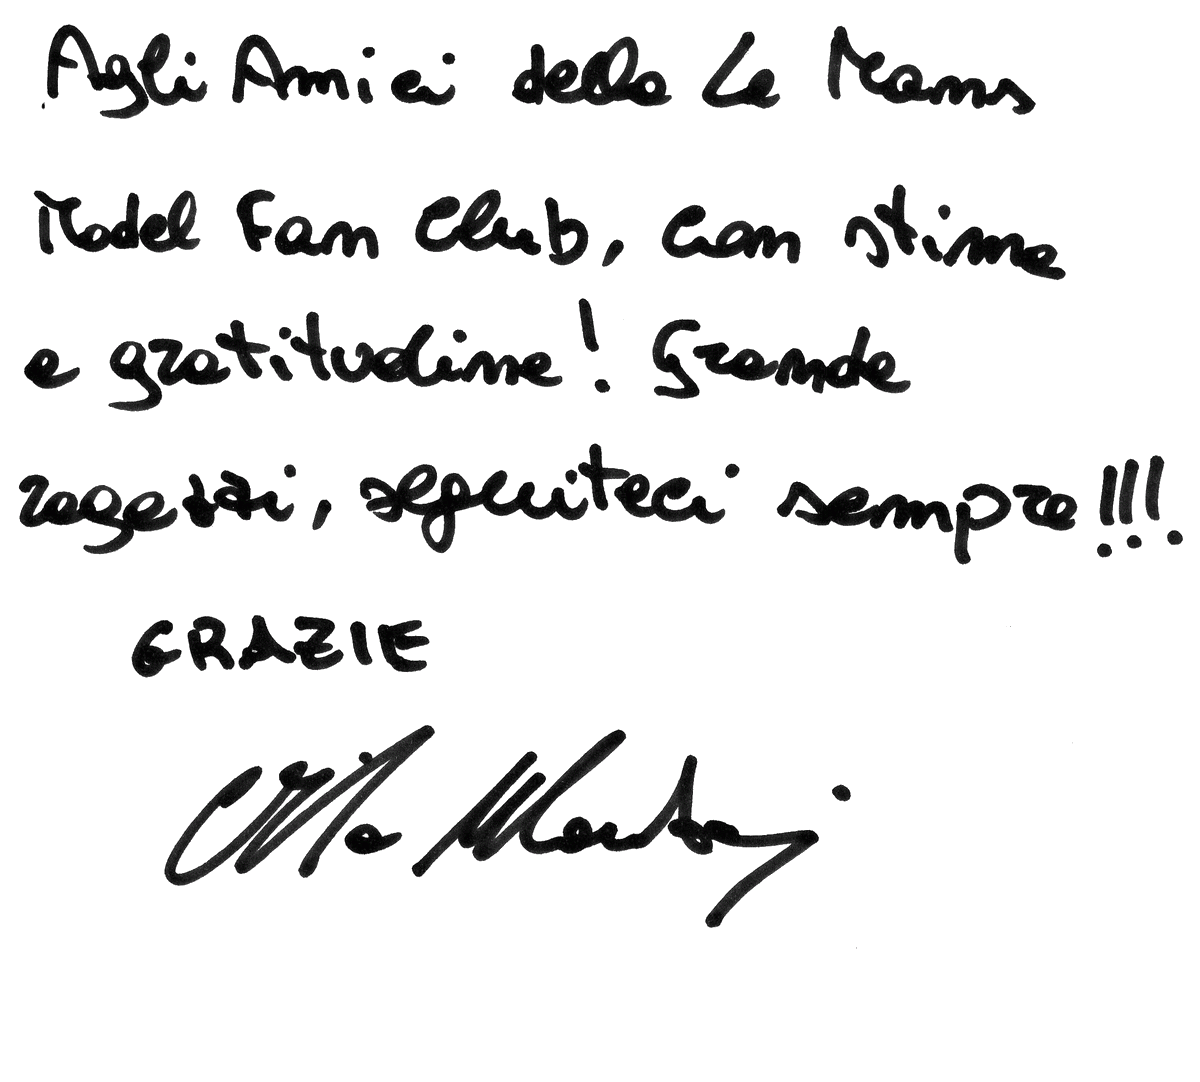 Agli Amici della Le Mans
Model Fan Club, con stima
e gratitudine! Grande
ragazzi, seguiteci sempre!!!
GRAZIE